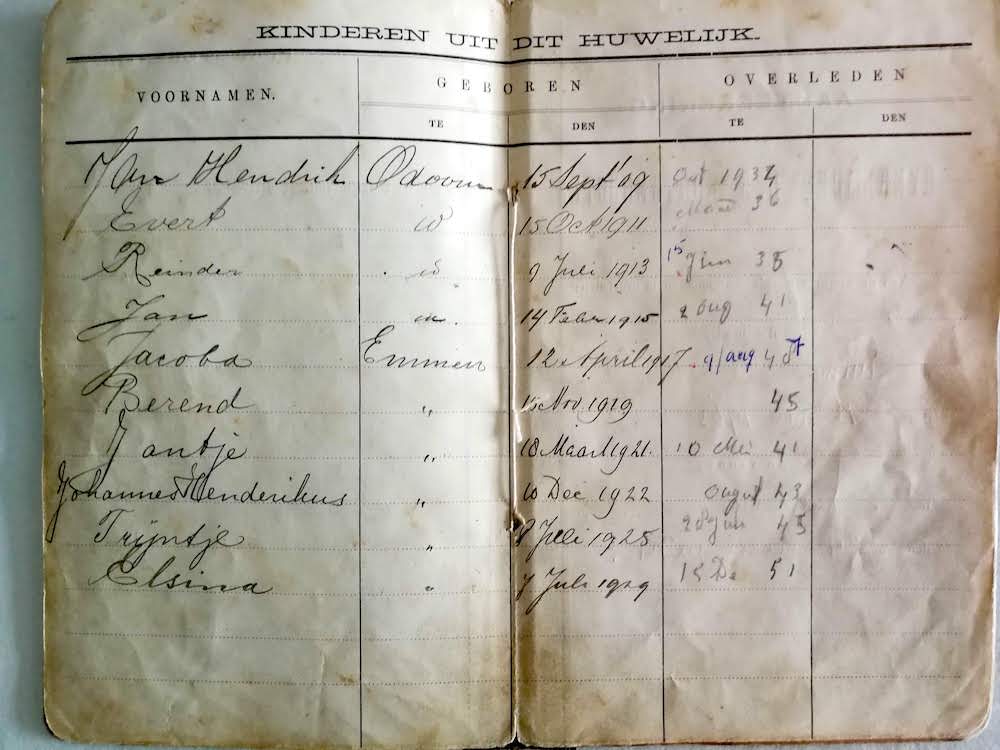 KINDEREN UIT DIT HUWELIJK.
VOORNAMEN. GEBOREN OVERLEDEN
TE DEN TE DEN
Jan Hendrik Odoorn 15 Sept '09 1934
Evert id 15 Oct 1911 36
Reinder id 9 Juli 1913 15 Jun 35
Jan 14 Febr 1915 2 aug 41
Jacoba Emmen 12 April 1917 9/aug
Berend " 15 Nov 1919 45
Jantje " 18 Maart 1921. 10 Mei 41
Johannes Henderikus " 10 Dec 1922 august 43
Trijntje " 8 Juli 1925 28 Jun 45
Elsina " 7 Juli 1929 15 De 51